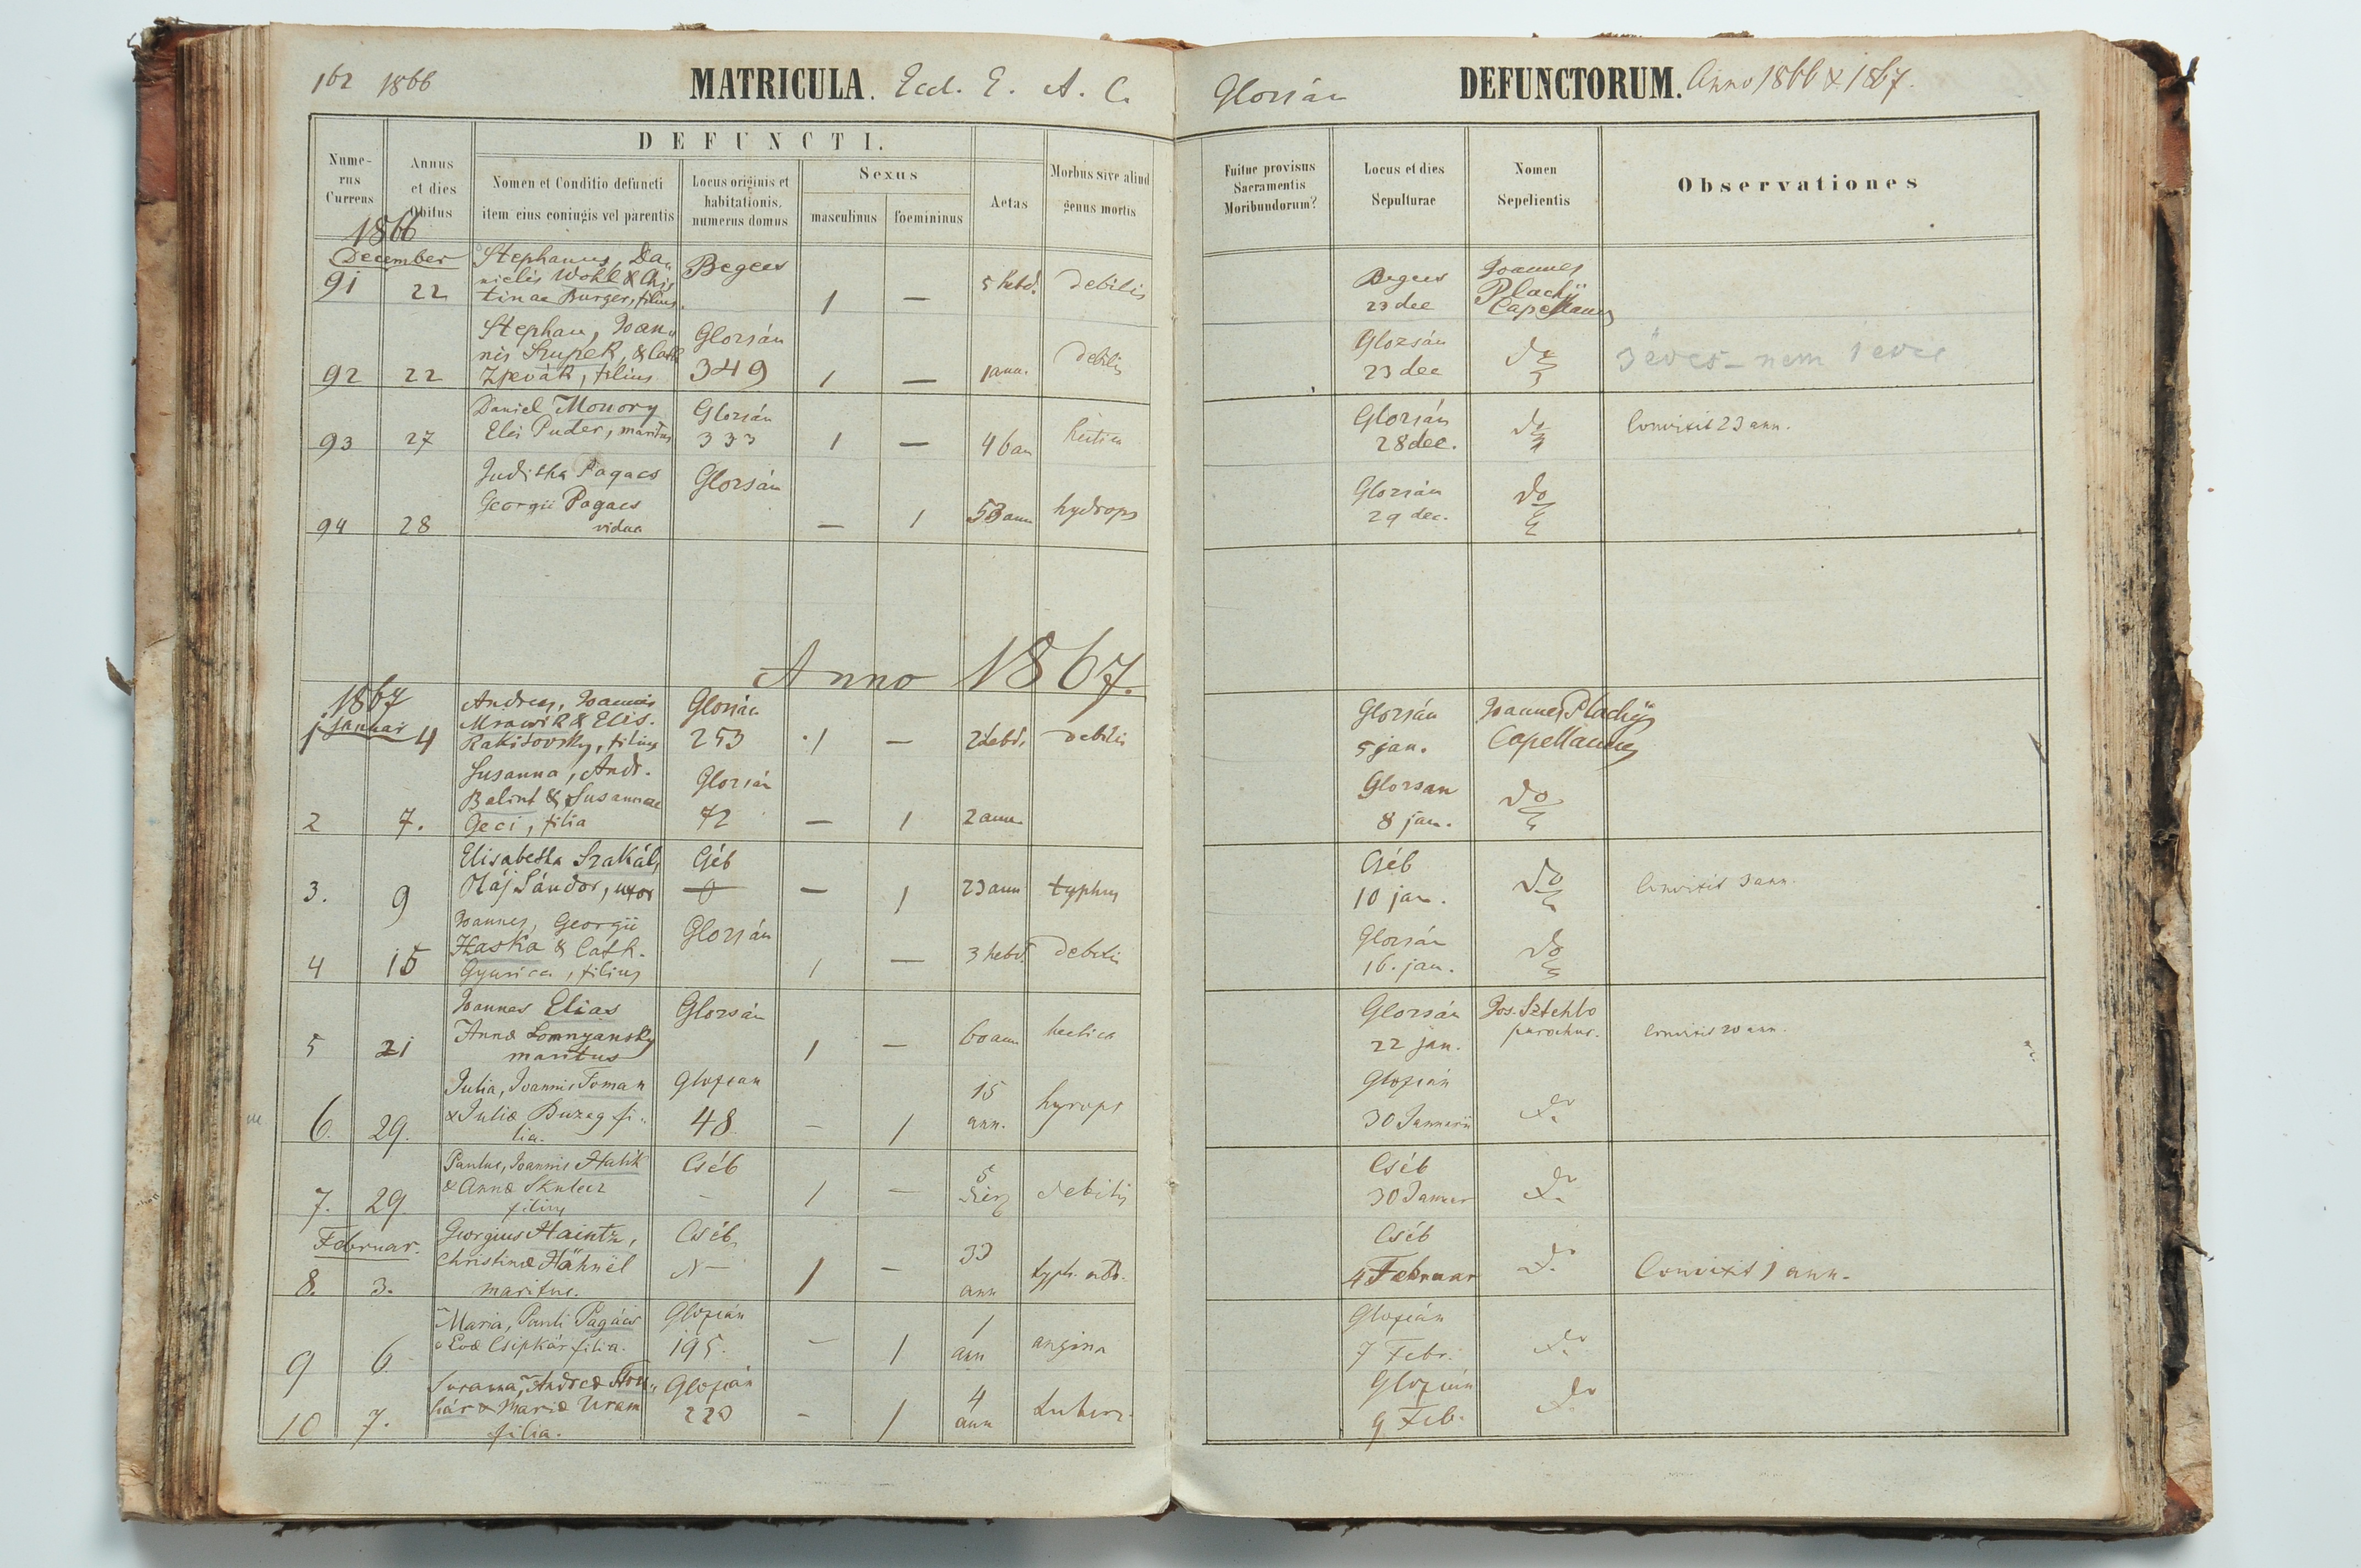 162 1866 MATRICULA. Eccl. E. A. C.
Glozsán DEFUNCTORUM. Anno 1866 & 1867.
DEFUNCTI.
Numerus Currens
Annus et dies Obitus
Nomen et Conditio defuncti item eius coniugis vel parentis
Locus originis et habitationis, numerus domus
Sexus
masculinus foemininus
Aetas
Morbus sive aliud genus mortis
Fuitne provisus Sacramentis Moribundorum?
Locus et dies Sepulturae
Nomen Sepelientis
Observationes
1866
December
Stephanus, Da-
nielis Wohl & Chris
tinae Burger, filius.
91 22 Begecs 1 — 5 hebd. debilis
Begecs 23 dec Joannes Plachÿ Capellanus
Stephan, Joan-
nis Szupek, & Cath
Zpevák, filius
92 22 Glozsán 349 1 — 1 ann. debilis
Glozsán 23 dec do
3 éves – nem 1 éves
Daniel Monory
Elis Puder, maritus
93 27 Glozsán 333 1 — 46 an hectica
Glozsán 28 dec. do Convixit 23 ann.
Juditha Pagacs
Georgii Pagacs
vidua
94 28 Glozsán — 1 53 ann hydrops
Glozsán 29 dec. do
Anno 1867.
1867
Januar
Andreas, Joannis
Mrawik & Elis.
Rakitovsky, filius
1 4 Glozsán 253 1 — 2 hebd. debilis
Glozsán 5 jan. Joannes Plachÿ Capellanus
Susanna, Andr.
Balint & Susannae
Geci, filia
2 7. Glozsán 72 — 1 2 ann.
Glozsan 8 jan. do
Elisabetha Szakál,
Oláj Sándor, uxor
3. 9 Cséb — 1 23 ann typhus
Cséb 10 jan. do Convixit 3 ann.
Joannes, Georgii
Haska & Cath.
Gyurica, filius
4 15 Glozsán 1 — 3 hebd. debilis
Glozsán 16. jan. do
Joannes Elias
Annæ Lomnyansky
maritus
5 21 Glozsán 1 — 60 ann hectica
Glozsán 22 jan. Jos. Sztehlo parochus. Convixit 20 ann.
Julia, Joannis Toman
& Juliæ Buzag fi-
lia.
6. 29. Glozsan 48 — 1 15 ann. hyrops
Glozsán 30 Januarii do
Paulus, Joannis Halik
& Annæ Skulecz
filius
7. 29. Cséb — 1 — 5 debilis
Cséb 30 Januar do
Februar.
Georgius Haintz,
Christinæ Hähnel
maritus.
8. 3. Cséb N— 1 — 33 ann typh.
Cséb 4 Februar do Convixit 1 ann.
Maria, Pauli Pagács
& Evæ Csipkár filia.
9 6. Glozsán 195. — 1 1 ann angina
Glozsán 7 Febr. do
Susanna, Andreæ
& Mariæ Uram
filia.
10 7. Glozsán 220 — 1 4 ann
Glozsán 9 Feb. do